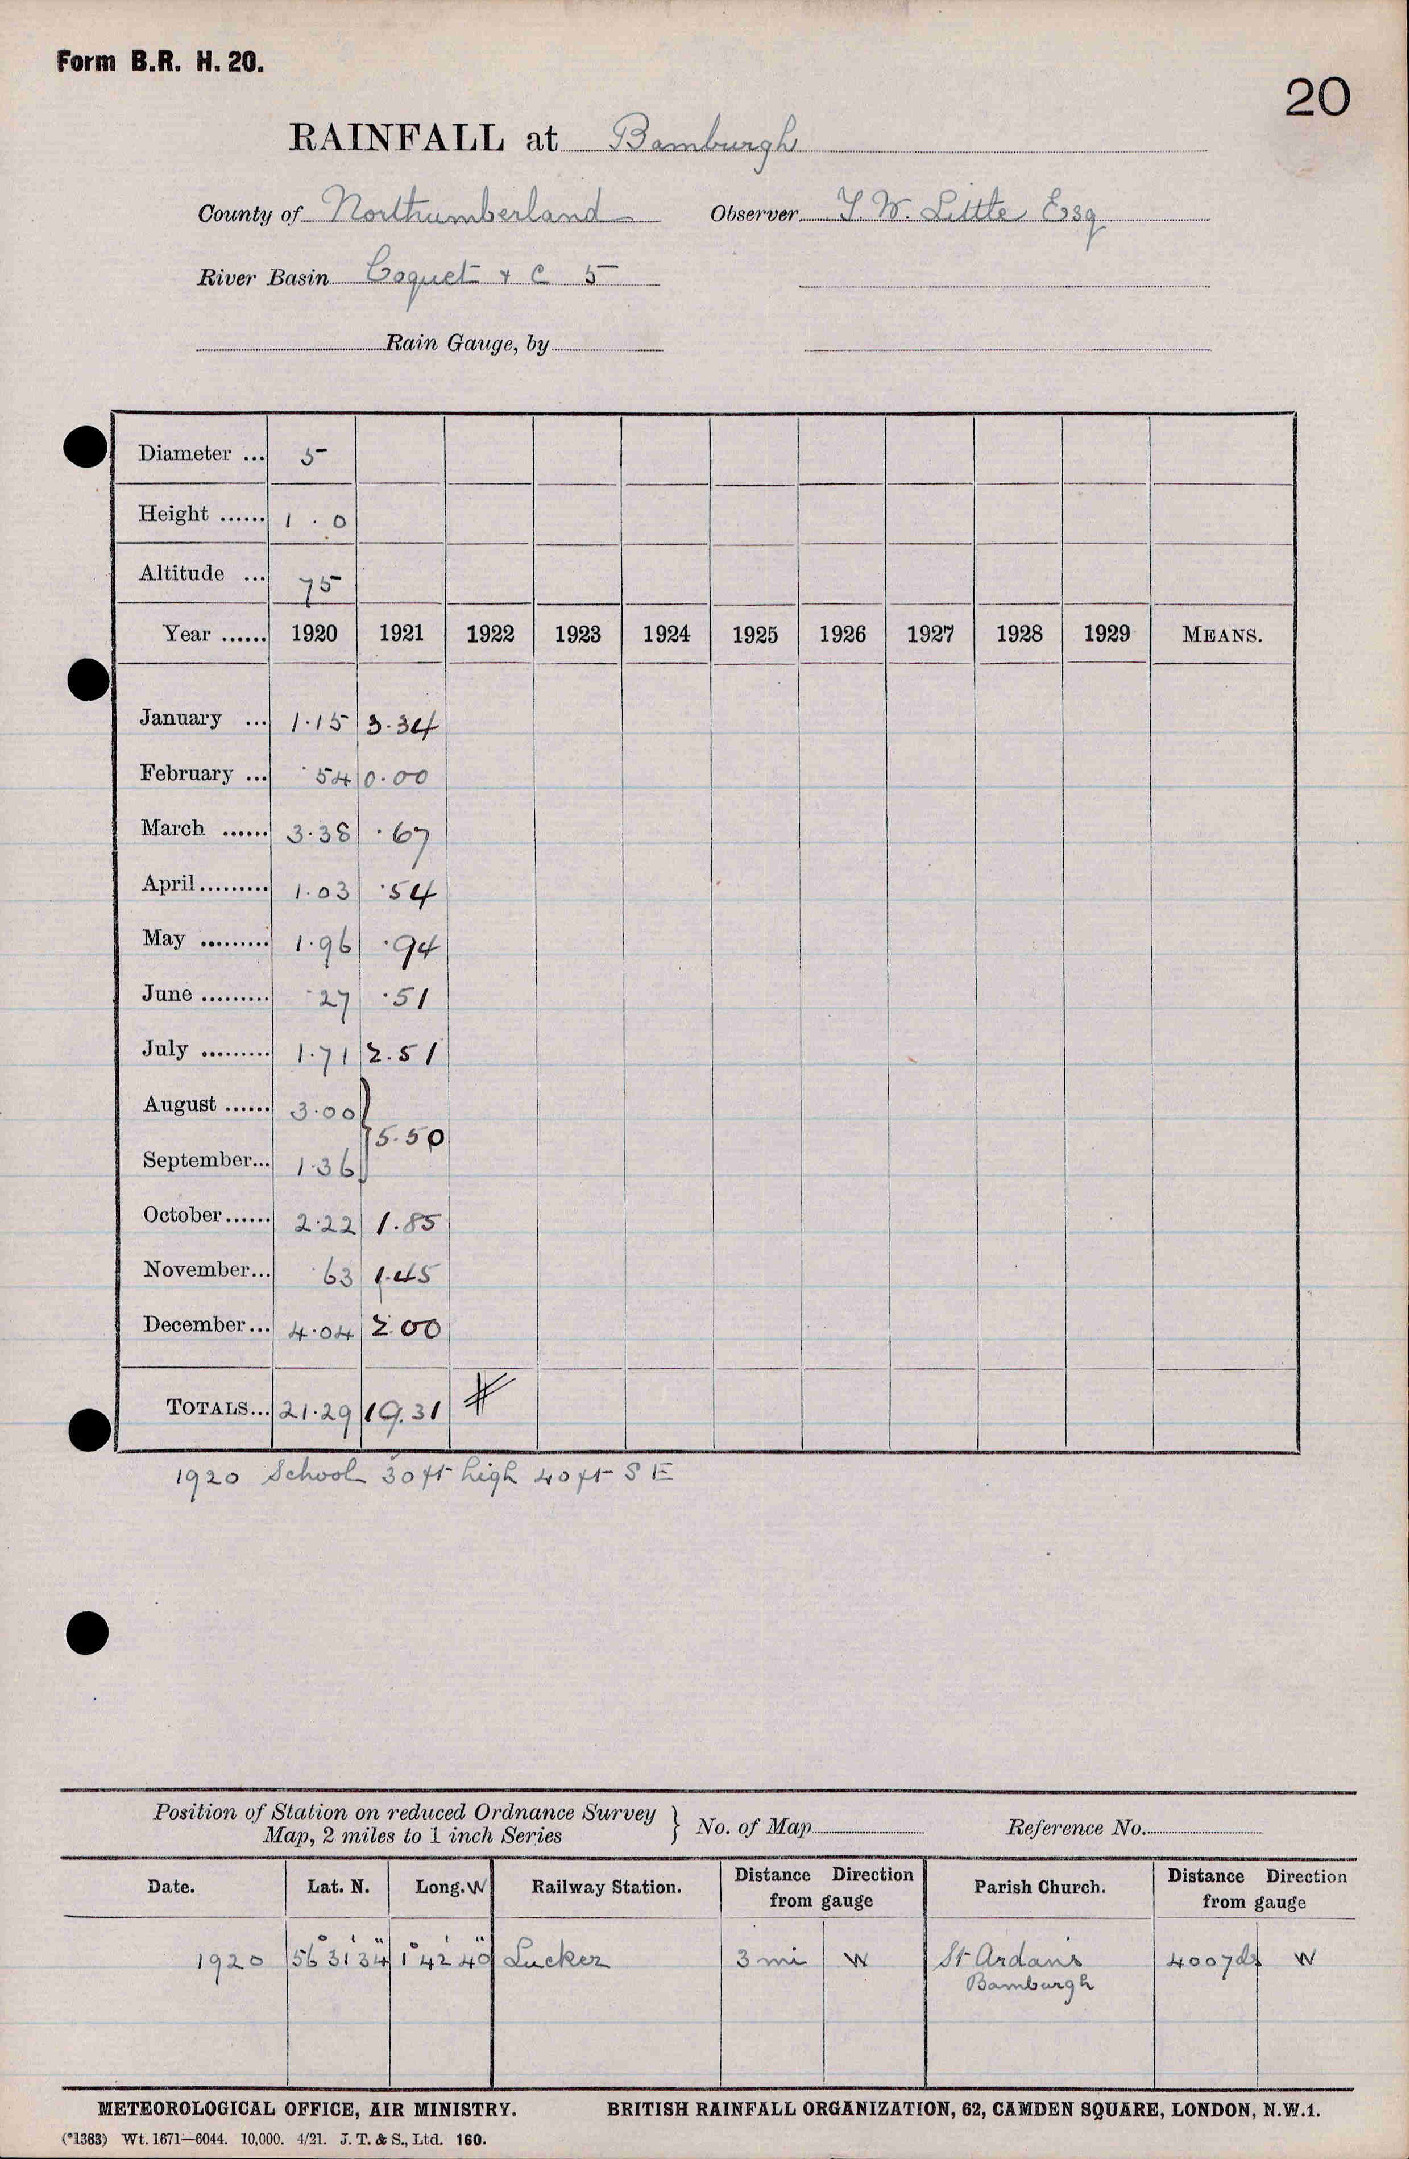 Form B.R. H. 20.
20
RAINFALL at Bamburgh
County of Northumberland Observer T. W. Little Esq
River Basin Coquet & C 5
Rain Gauge, by
Diameter ... 5
Height ...... 1.0
Altitude ... 75
Year ...... 1920 1921 1922 1923 1924 1925 1926 1927 1928 1929 MEANS.
January ... 1.15 3.34
February ... .54 0.00
March ...... 3.38 .67
April ......... 1.03 .54
May ......... 1.96 .94
June ......... .27 .51
July ......... 1.71 2.51
August ...... 3.00
} 5.50
September... 1.36
October...... 2.22 1.85
November... .63 1.45
December... 4.04 2.00
TOTALS... 21.29 19.31 #
1920 School 30 ft high 40 ft S E
Position of Station on reduced Ordnance Survey
Map, 2 miles to 1 inch Series } No. of Map Reference No.
Date. Lat. N. Long. W Railway Station. Distance Direction from gauge Parish Church. Distance Direction from gauge
1920 56° 31' 34" 1° 42' 40" Lucker 3 mi W St Ardan's 400 yds W
Bamburgh
METEOROLOGICAL OFFICE, AIR MINISTRY. BRITISH RAINFALL ORGANIZATION, 62, CAMDEN SQUARE, LONDON, N.W.1.
(*1383) Wt. 1671—6044. 10,000. 4/21. J. T. & S., Ltd. 160.